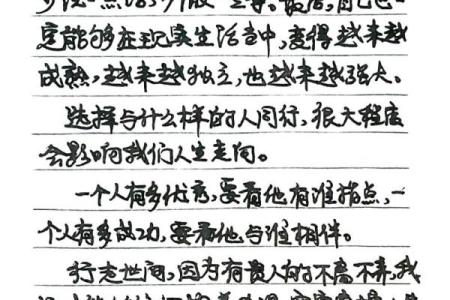 定能够在现实生活当中，变得越来越
成熟，越来越独立，也越来越强大。
选择与什么样的人同行，很大程度
会影响我们人生走向。
一个人有多优秀，要看他有谁指点，一
个人有多成功，要看他与谁相伴。
行走世间，因为有贵人的不离不弃，我